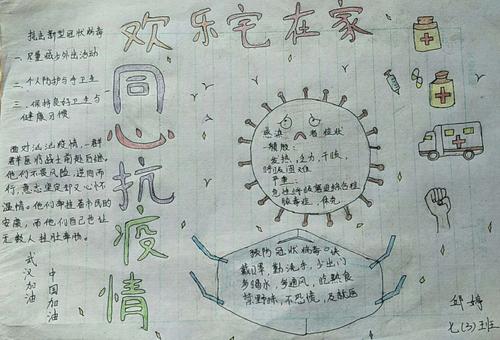 欢乐宅在家
同心抗疫情
抗击新型冠状病毒
一、尽量减少外出活动
二、个人防护与手卫生
三、保持良好卫生与
健康习惯
面对汹汹疫情，一群
群医疗战士前赴后继，
他们不畏风险，逆向而
行，意志坚定却又心怀
温情。他们牵挂着市民的
安康，而他们自己也让
无数人挂肚牵肠。
武汉加油
中国加油
感染者症状
一般：
发热，乏力，干咳，
呼吸困难
严重：
急性呼吸窘迫综合征
脓毒症，休克
预防冠状病毒
戴口罩，勤洗手，少出门
多喝水，多通风，吃熟食
禁野味，不恐慌，及就医
邱婷
七(3)班